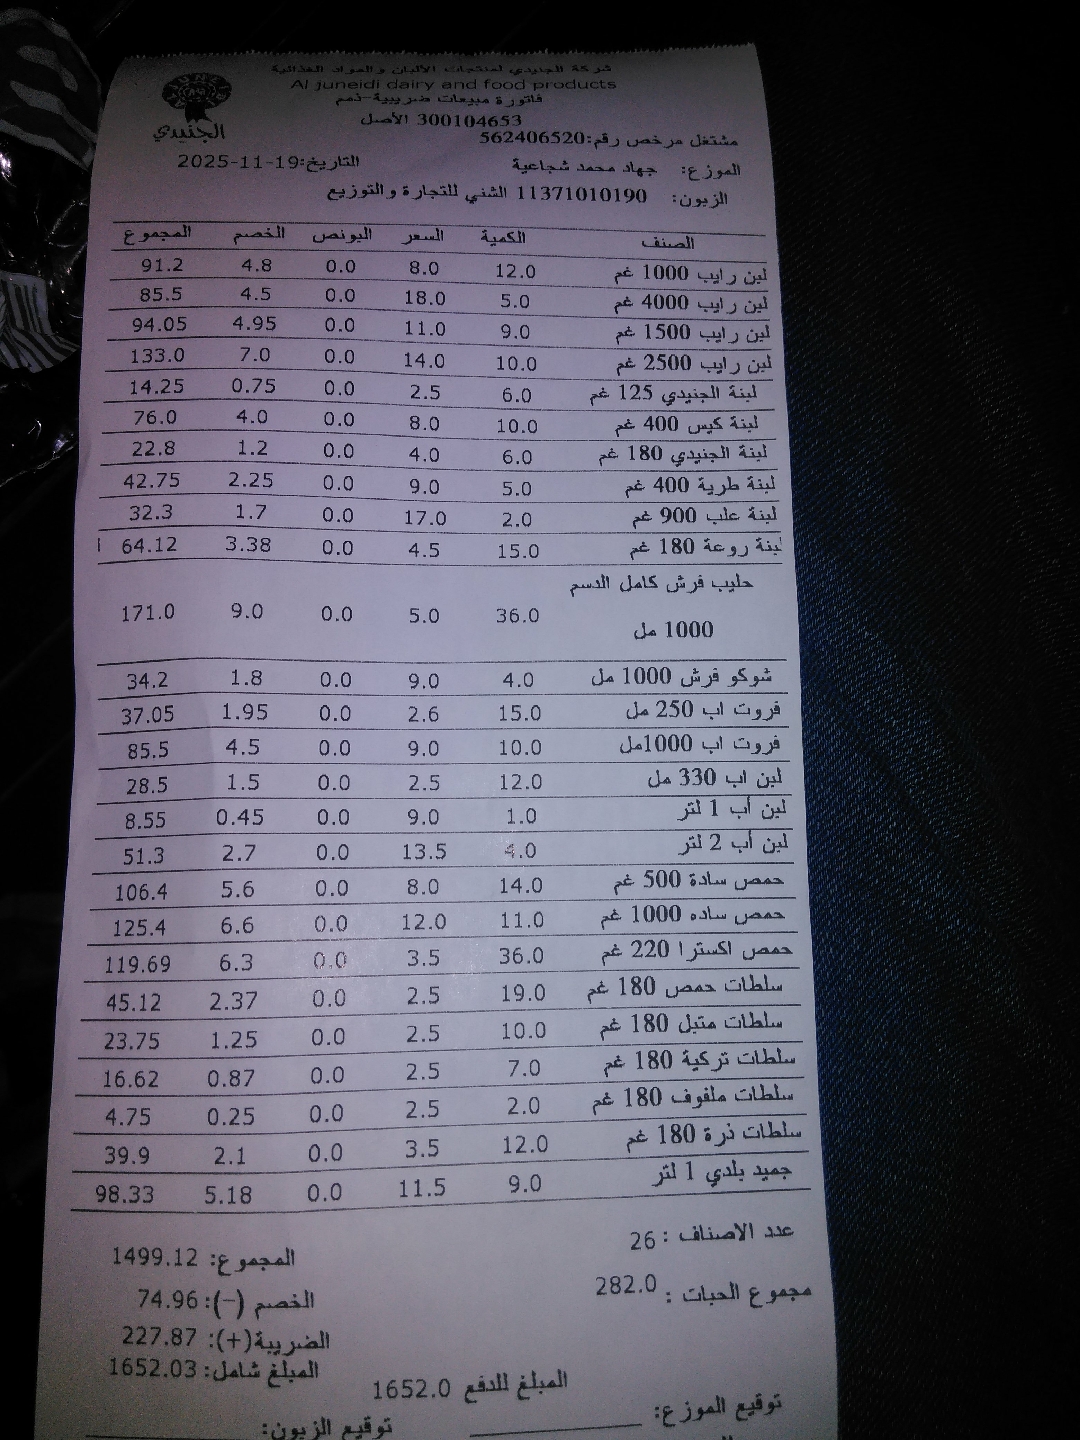 شركة الجنيدي لمنتجات الألبان والمواد الغذائية
Al juneidi dairy and food products
فاتورة مبيعات ضريبية-ذمم
الجنيدي
300104653 الأصل
مشتغل مرخص رقم:562406520
الموزع: جهاد محمد شجاعية التاريخ:2025-11-19
الزبون: 11371010190 الشني للتجارة والتوزيع
الصنف الكمية السعر البونص الخصم المجموع
لبن رايب 1000 غم 12.0 8.0 0.0 4.8 91.2
لبن رايب 4000 غم 5.0 18.0 0.0 4.5 85.5
لبن رايب 1500 غم 9.0 11.0 0.0 4.95 94.05
لبن رايب 2500 غم 10.0 14.0 0.0 7.0 133.0
لبنة الجنيدي 125 غم 6.0 2.5 0.0 0.75 14.25
لبنة كيس 400 غم 10.0 8.0 0.0 4.0 76.0
لبنة الجنيدي 180 غم 6.0 4.0 0.0 1.2 22.8
لبنة طرية 400 غم 5.0 9.0 0.0 2.25 42.75
لبنة علب 900 غم 2.0 17.0 0.0 1.7 32.3
لبنة روعة 180 غم 15.0 4.5 0.0 3.38 64.12
حليب فرش كامل الدسم
1000 مل 36.0 5.0 0.0 9.0 171.0
شوكو فرش 1000 مل 4.0 9.0 0.0 1.8 34.2
فروت اب 250 مل 15.0 2.6 0.0 1.95 37.05
فروت اب 1000مل 10.0 9.0 0.0 4.5 85.5
لبن اب 330 مل 12.0 2.5 0.0 1.5 28.5
لبن أب 1 لتر 1.0 9.0 0.0 0.45 8.55
لبن أب 2 لتر 4.0 13.5 0.0 2.7 51.3
حمص سادة 500 غم 14.0 8.0 0.0 5.6 106.4
حمص ساده 1000 غم 11.0 12.0 0.0 6.6 125.4
حمص اكسترا 220 غم 36.0 3.5 0.0 6.3 119.69
سلطات حمص 180 غم 19.0 2.5 0.0 2.37 45.12
سلطات متبل 180 غم 10.0 2.5 0.0 1.25 23.75
سلطات تركية 180 غم 7.0 2.5 0.0 0.87 16.62
سلطات ملفوف 180 غم 2.0 2.5 0.0 0.25 4.75
سلطات ذرة 180 غم 12.0 3.5 0.0 2.1 39.9
جميد بلدي 1 لتر 9.0 11.5 0.0 5.18 98.33
عدد الاصناف : 26 المجموع: 1499.12
مجموع الحبات : 282.0 الخصم (-): 74.96
الضريبة(+): 227.87
المبلغ شامل: 1652.03
المبلغ للدفع 1652.0
توقيع الموزع:
توقيع الزبون: